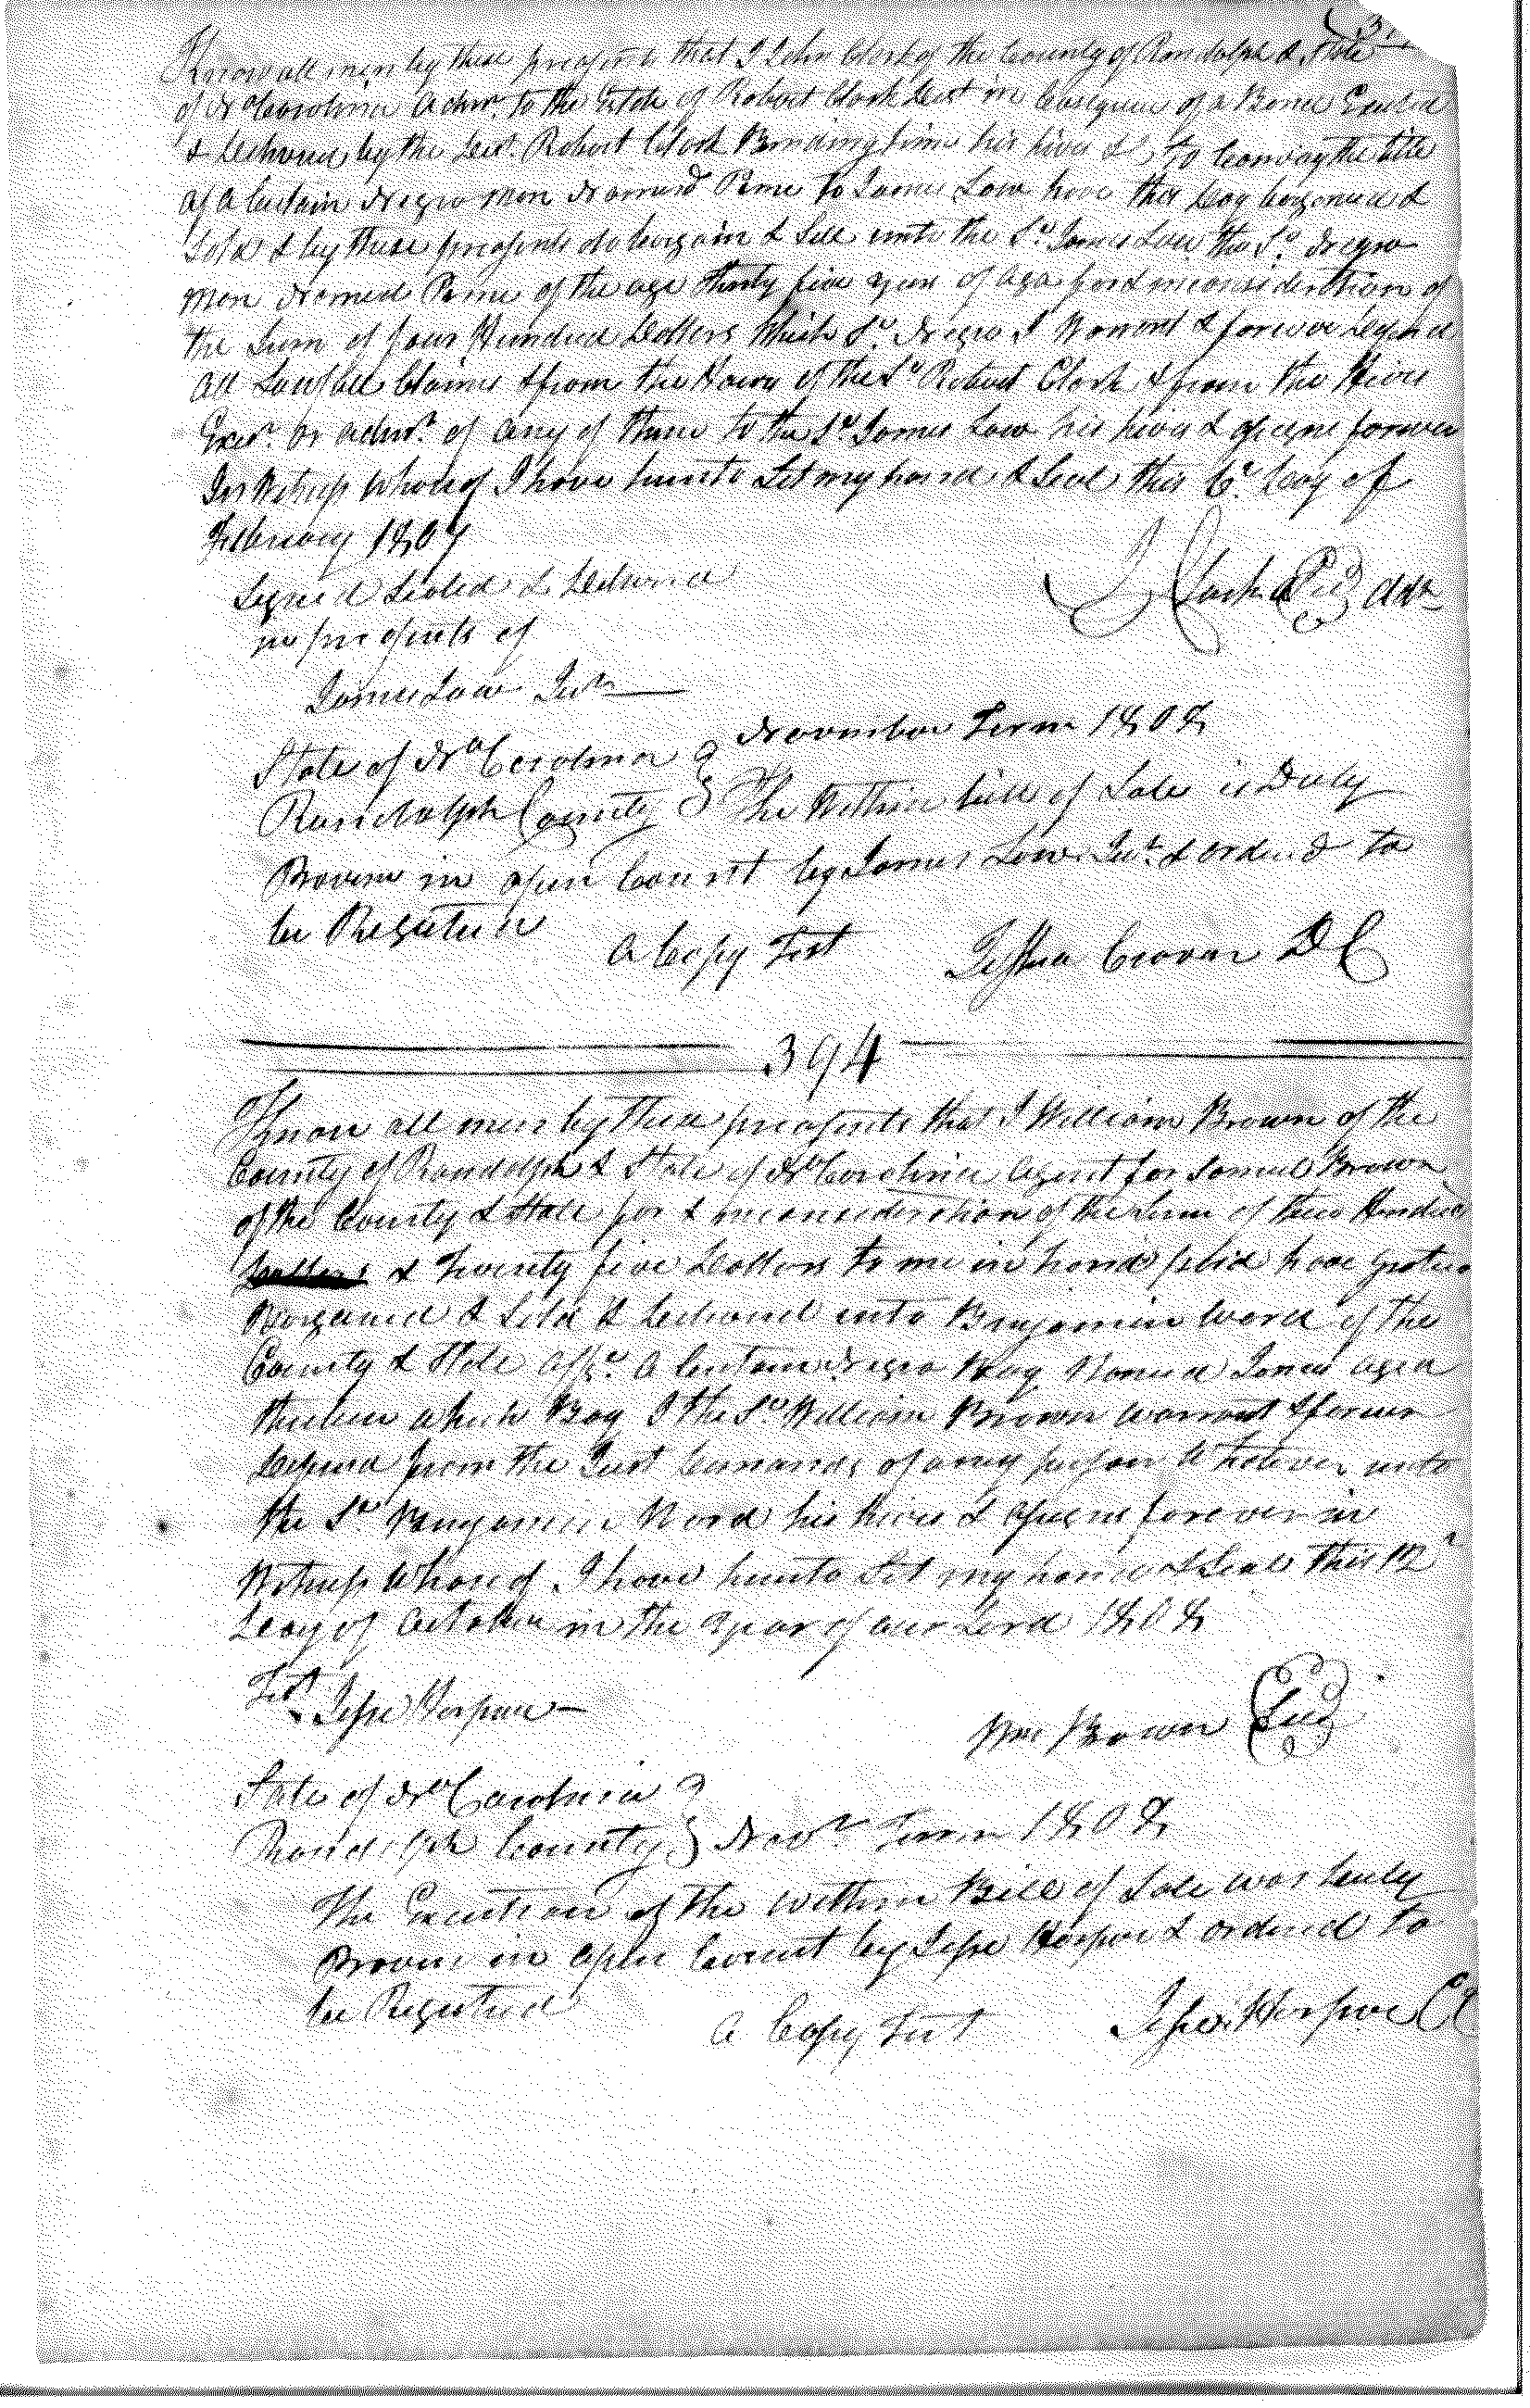 Know all men by these presents that I John Clark of the County of Randolph & State
of No Carolina Admr. to the Estate of Robert Clark Decst in Consequence of a Bond Executed
& Delivered by the Decd. Robert Clark Binding him his heirs &c to Convay the title
of a Certain Negro man Named to James Law have this Day bargained &
Sold & by these presents do bargain & Sell unto the Sd James Law the Sd. Negro
man Named of the age thirty five years of age for & in consideration of
the Sum of four Hundred Dollars Which Sd. Negro I Warrant & forever Defend
All Lawfull Claims & from the of the Sd Robert Clark & from the Heirs
Exers. or admrs. of any of them to the Sd James Law his heirs & assigns forever
In Witness Whereof I have hunto Set my hand & Seal this 6th Day of
February 1807
Signed Sealed & Delivered
in presents of
J Clark Seal Adr
James Law Jur
State of No Carolina November Term 1808
Randolph County The Within bill of Sale is Duly
Proven in open Court by James Law Jur. & ordered to
be Registered
A Copy Test D C
394
Know all men by these presents that I William Brown of the
County of Randolph & State of No Carolina Agent for Samuel Brown
of the County & State for & in consideration of the Sum of three Hundred
Dollars & twenty five Dollars to me in hand paid have
Bargained & Sold & Delivered unto Benjamin Word of the
County & State affsd. A Certain Negro Boy Named James aged
thirteen which Boy I the Sd William Brown warrant & forever
Defend from the Just Demands of any person Whatever unto
the Sd Bengamin Word his Heirs & assigns forever in
Witness Whereof I have hunto Set my hand & Seal this 12th
Day of October in the year of our Lord 1808
Test Jesse Harper
Wm Brown Seal
State of No Carolina
Randolph County Novr Term 1808
The Execution of the within Bill of Sale was Duly
Proven in open Court by Jesse Harper & ordered to
be Registered
A Copy Test Jesse Harper CC